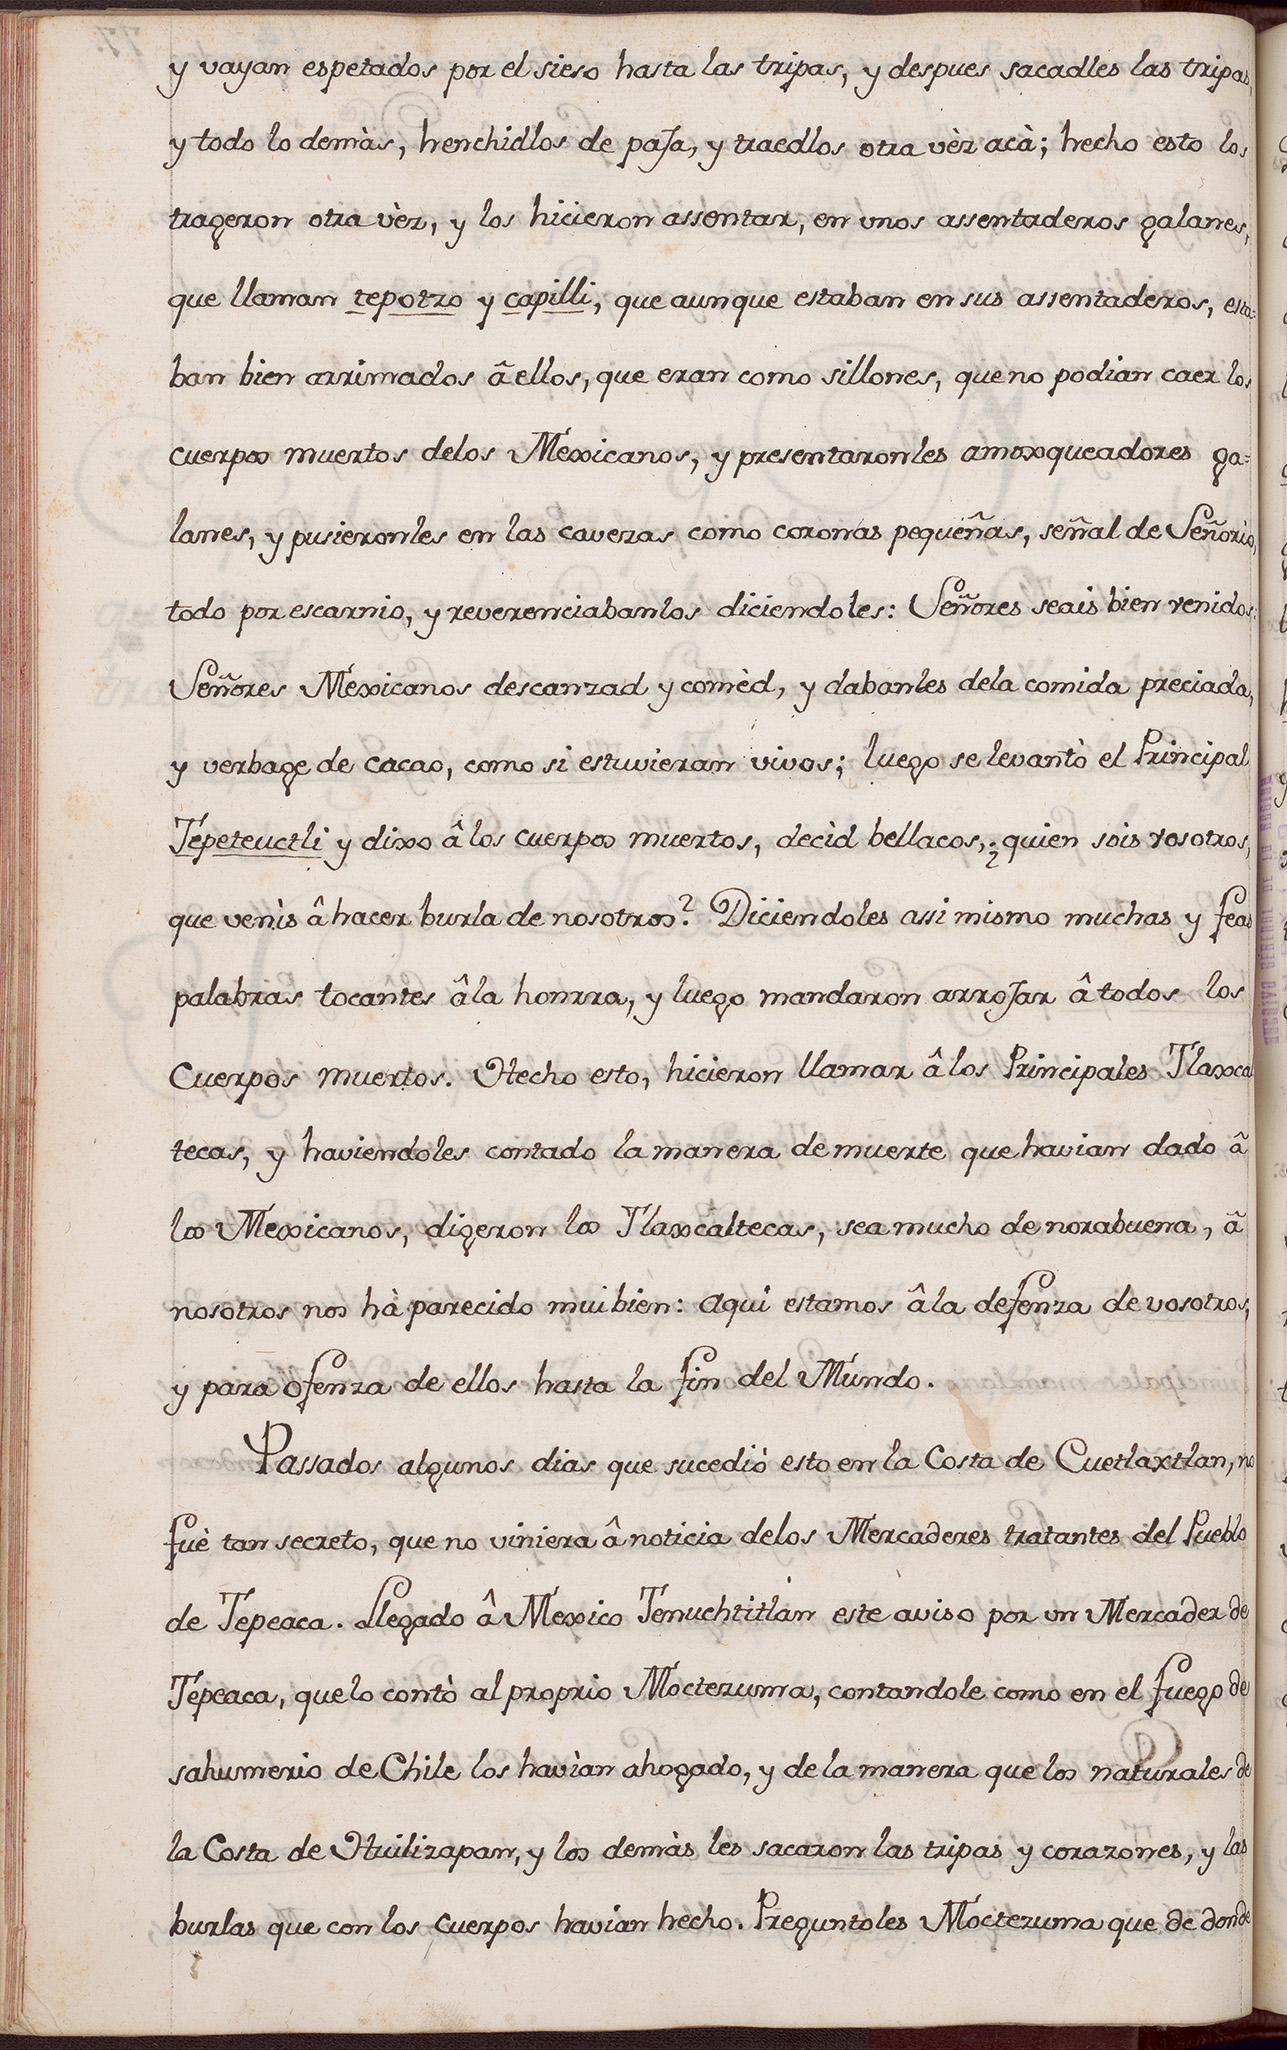 y vayan espetados por el sieso hasta las tripas, y despues sacadles las tripas,
y todo lo demàs, henchidlos de paja, y traedlos otra vèz acà; hecho esto los
trageron otra vèz, y los hicieron assentar, en unos assentaderos galanes,
que llaman tepotzo y capilli, que aunque estaban en sus assentaderos, esta=
ban bien arrimados â ellos, que eran como sillones, que no podian caer los
cuerpos muertos delos Mexicanos, y presentaronles amoxqueadores ga=
lanes, y pusieronles en las cavezas como coronas pequeñas, señal de Señorìo,
todo por escarnio, y reverenciabanlos diciendoles: Señores seais bien venidos:
Señores Mexicanos descanzad y comèd, y dabanles dela comida preciada,
y verbage de cacao, como si estuvieran vivos; luego se levantò el Principal
Tepeteuctli y dixo â los cuerpos muertos, decìd bellacos, ¿quien sois vosotros,
que venìs â hacer burla de nosotros? Diciendoles assi mismo muchas y feas
palabras tocantes â la honrra, y luego mandaron arrojar â todos los
Cuerpos muertos. Hecho esto, hicieron llamar â los Principales Tlaxcal
tecas, y haviendoles contado la manera de muerte que havian dado â
los Mexicanos, digeron los Tlaxcaltecas, sea mucho de norabuena, â
nosotros nos hà parecido mui bien: aqui estamos â la defenza de vosotros,
y para ofenza de ellos hasta la fin del Mundo.
Passados algunos dias que sucediò esto en la Costa de Cuetlaxtlan, no
fuè tan secreto, que no viniera â noticia delos Mercaderes tratantes del Pueblo
de Tepeaca. Llegado â Mexico Tenuchtitlan este aviso por un Mercader de
Tepeaca, que lo contò al proprio Moctezuma, contandole como en el fuego de
sahumerio de Chile los havìan ahogado, y de la manera que los naturales de
la Costa de Huilizapan, y los demàs les sacaron las tripas y corazones, y las
burlas que con los cuerpos havian hecho. Preguntoles Moctezuma que de donde